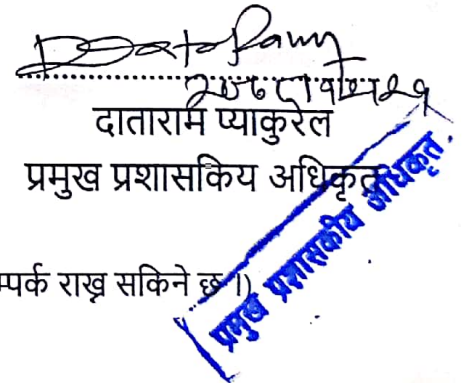 दाताराम प्याकुरेल
प्रमुख प्रशासकिय अधिकृत
म्पर्क राख्न सकिने छ ।)
प्रमुख प्रशासकीय अधिकृत